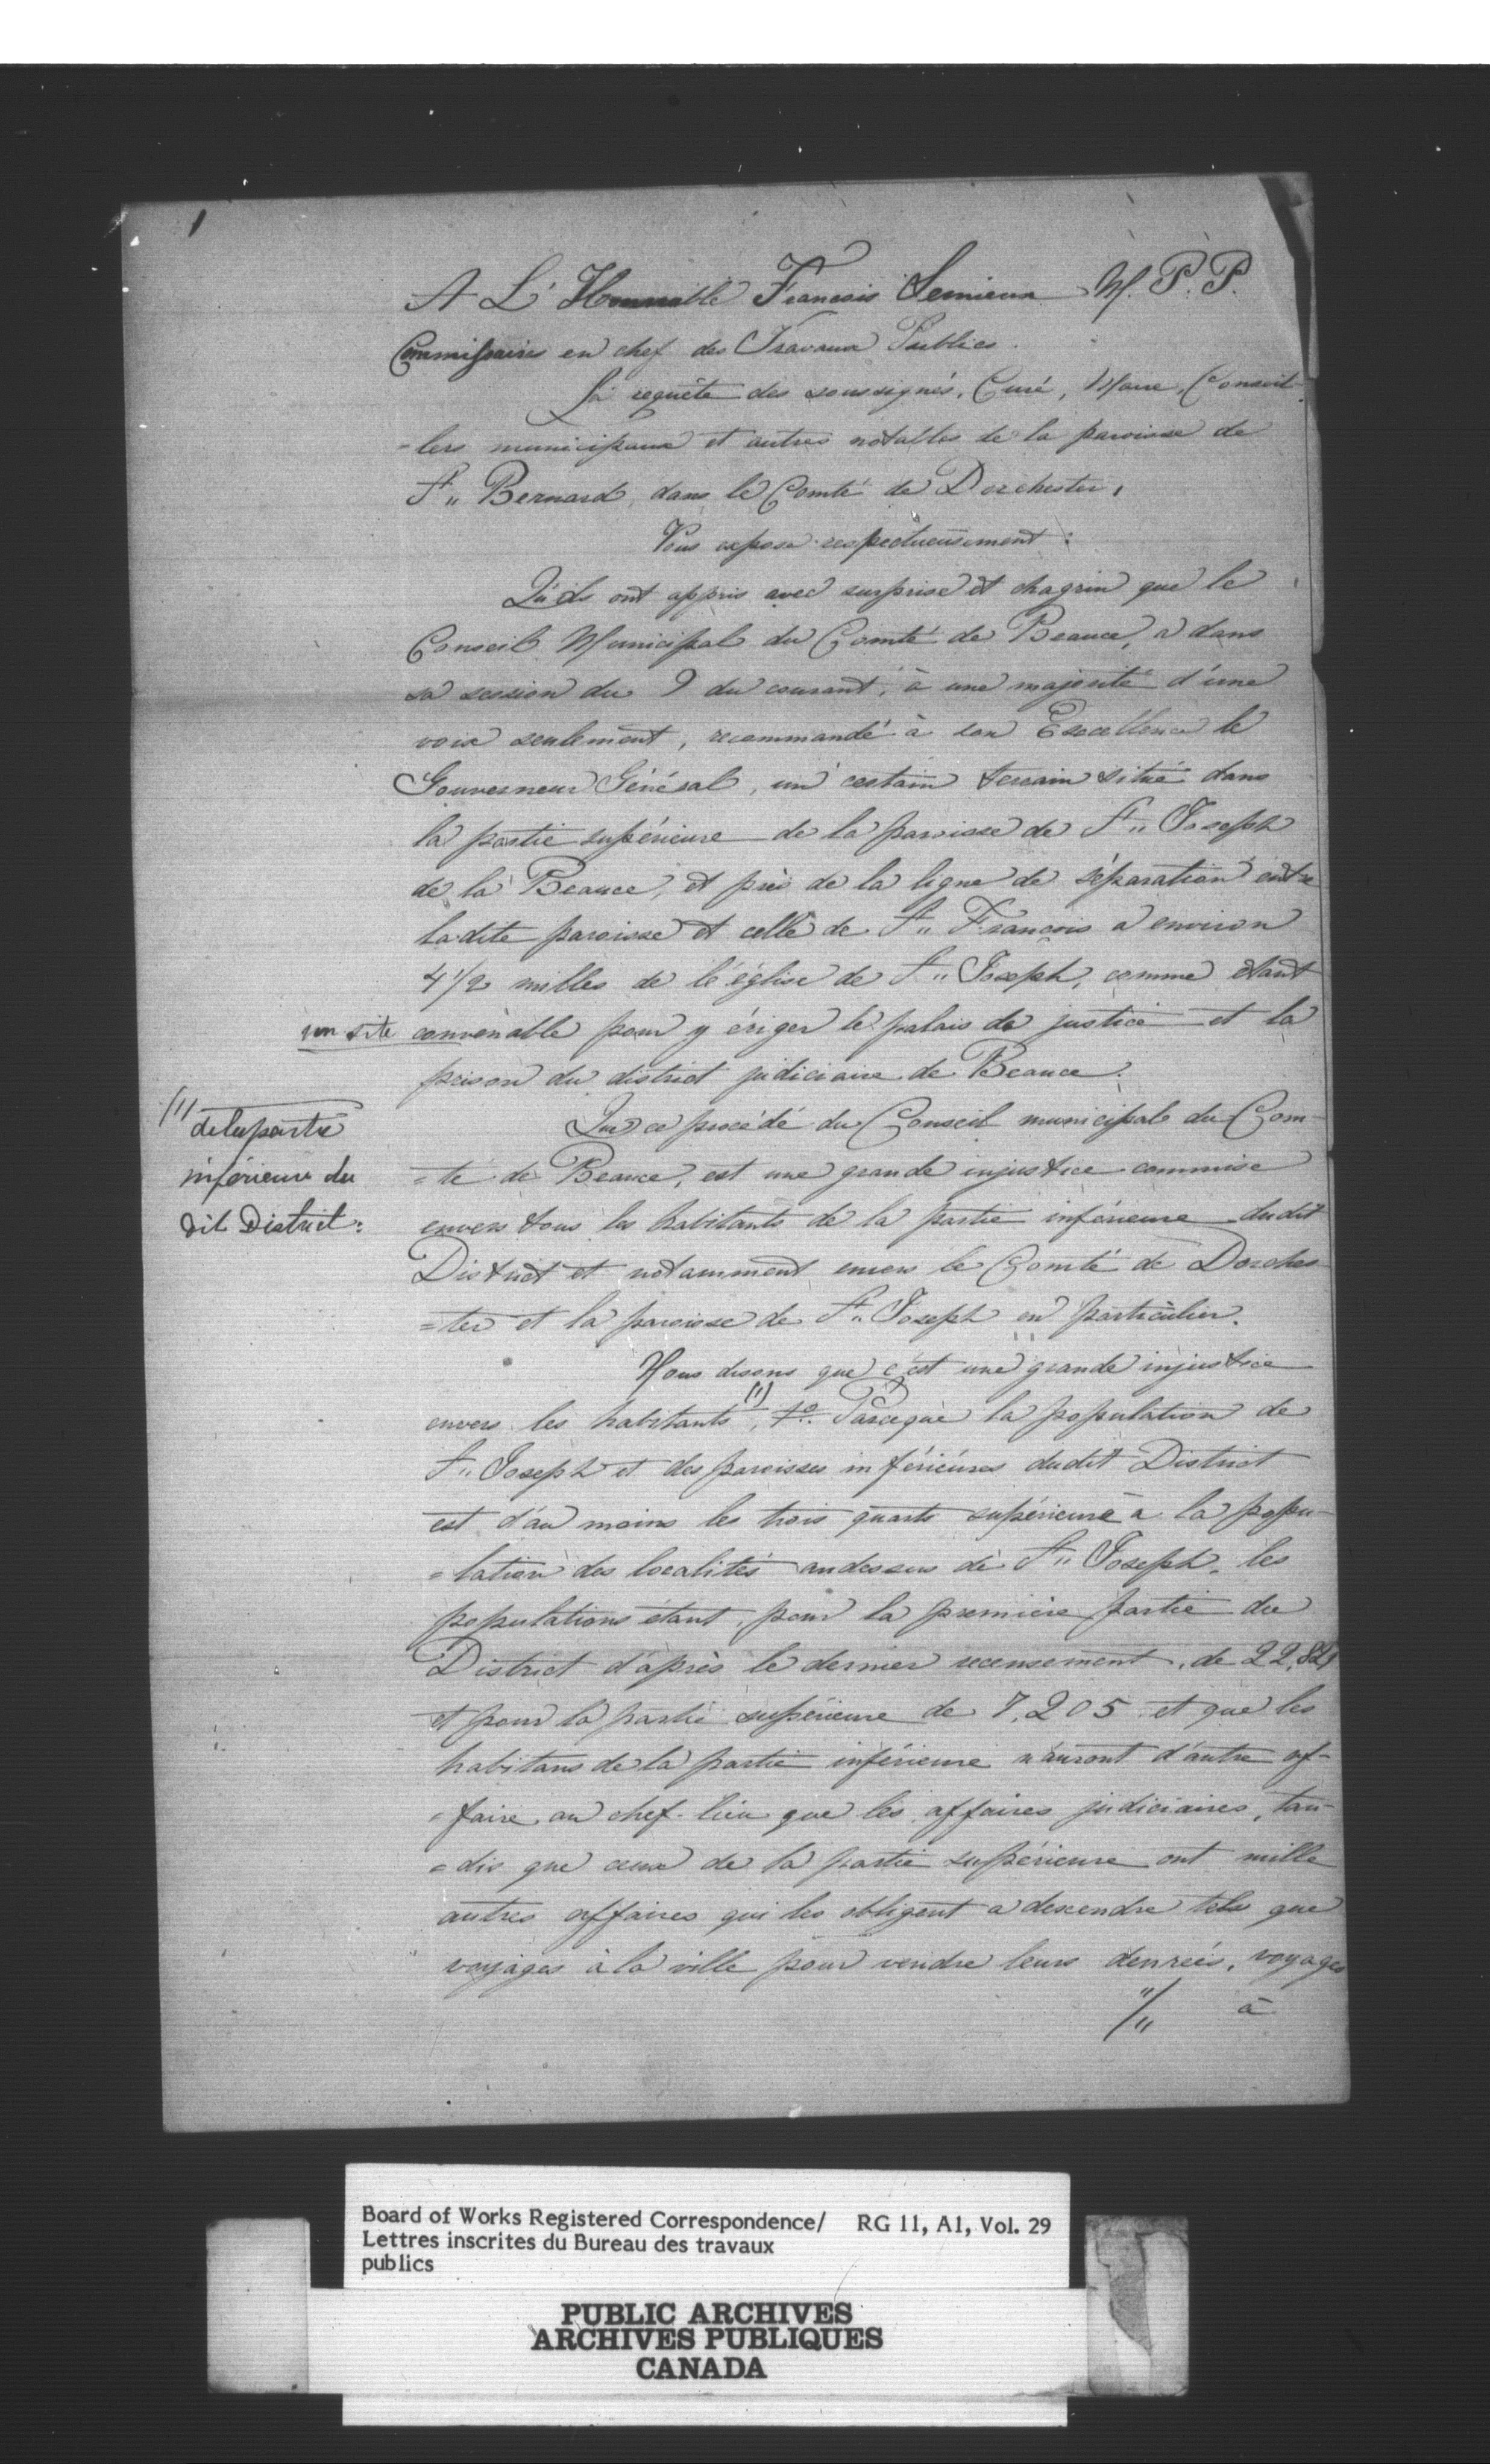 1
A L'Honorable Francois Lemieux M. P. P.
Commissaires en chef des Travaux Publics.
La requête des soussignés, Curé, Maire, Conseil-
=lers municipaux et autres notables de la paroisse de
St. Bernard, dans le Comté de Dorchester,
Vous expose respectueusement :
Qu'ils ont appris avec surprise et chagrin que le
Conseil Municipal du Comté de Beauce, a dans
sa session du 9 du courant, à une majorité d'une
voix seulement, recommandé à son Excellence le
Gouverneur Général, un certain terrain situé dans
la partie supérieure de la paroisse de St. Joseph
de la Beauce, et près de la ligne de séparation entre
ladite paroisse et celle de St. Francois a environ
4 1/2 milles de l'église de St. Joseph, comme étant
un site convenable pour y ériger le palais de justice et la
prison du district judiciaire de Beauce.
Que ce procédé du Conseil municipal du Com-
=té de Beauce, est une grande injustice commise
envers tous les habitants de la partie inférieure dudit
District et notamment envers le Comté de Dorches-
=ter et la paroisse de St. Joseph en particulier.
Nous disons que c'est une grande injustice
envers les habitants (1), 1o. Parceque la population de
St. Joseph et des paroisses inférieures dudit District
est d'au moins les trois quarts supérieure a la popu-
=lation des localités audessus de St. Joseph, les
populations étant, pour la première partie du
District d'après le dernier recensement, de 22,821
et pour la partie supérieure de 7,205 et que les
habitans de la partie inférieure n'auront d'autre af-
=faire au chef-lieu que les affaires judiciaires, tan-
=dis que ceux de la partie supérieure ont mille
autres affaires qui les obligent a descendre tels que
voyages à la ville pour vendre leurs denrées, voyages
"/" à
(1) de la partie
inférieure du
dit District:
Board of Works Registered Correspondence/ RG 11, A1, Vol. 29
Lettres inscrites du Bureau des travaux
publics
PUBLIC ARCHIVES
ARCHIVES PUBLIQUES
CANADA